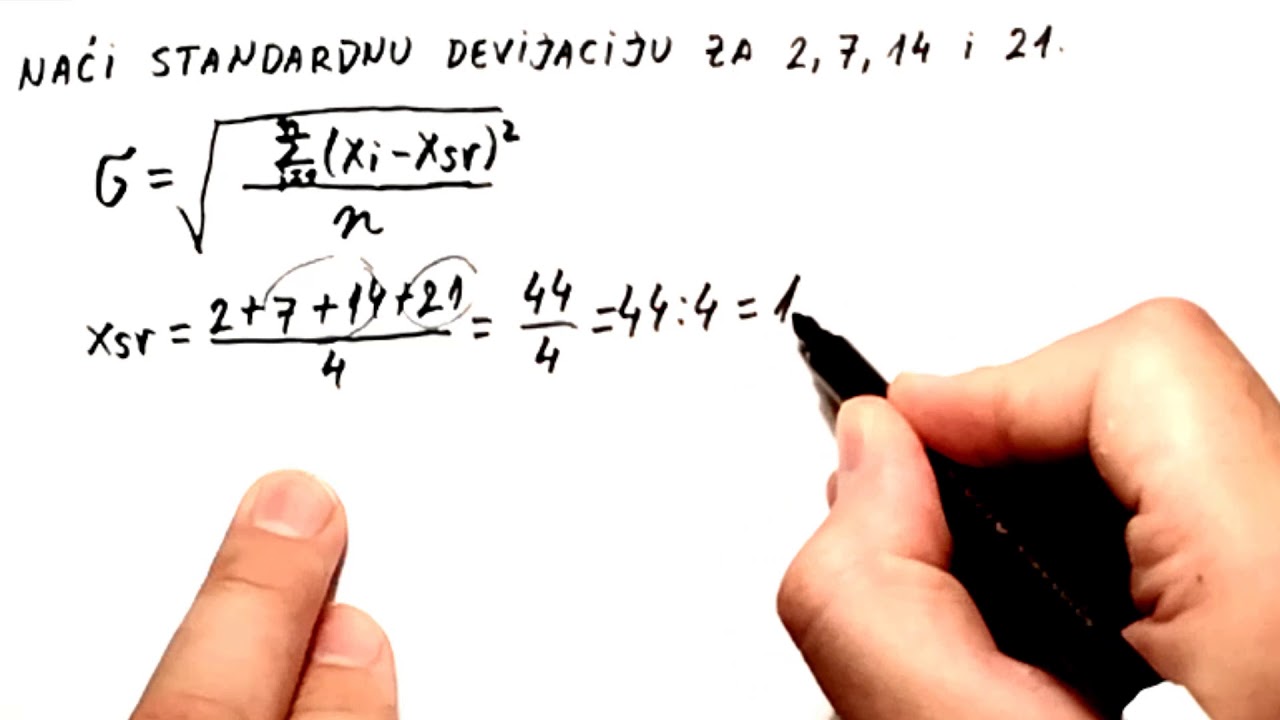 NAĆI STANDARDNU DEVIJACIJU ZA 2, 7, 14 i 21.
σ = √ n∑i=1 (xi - xsr)² / n
xsr = 2+7+14+21 / 4 = 44 / 4 = 44:4 = 1